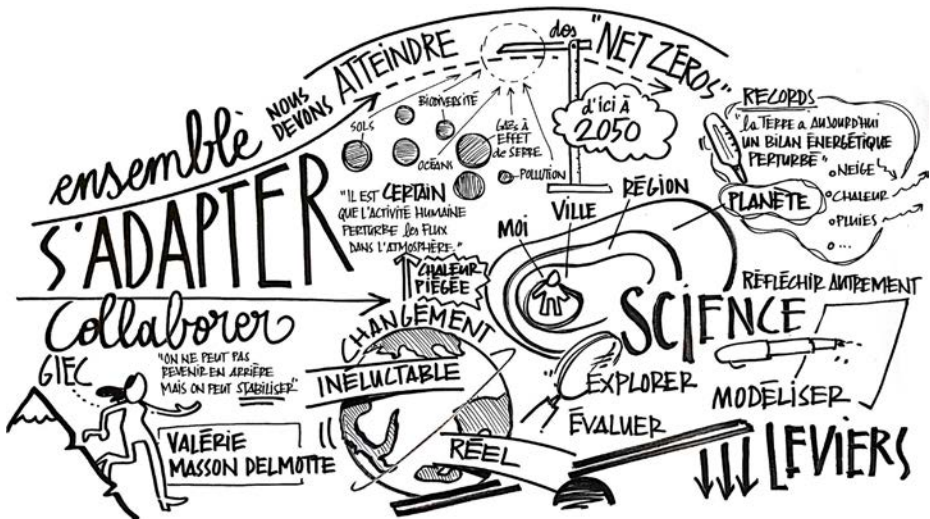 ensemble
NOUS
DEVONS
ATTEINDRE
dos
"NET ZÉROS"
d'ici à
2050
SOLS
BIODIVERSITÉ
OCÉANS
GAZ À
EFFET
de SERRE
POLLUTION
RECORDS
"la TERRE a AUJOURD'HUI
UN BILAN ÉNERGÉTIQUE
PERTURBÉ"
NEIGE
CHALEUR
PLUIES
...
PLANÈTE
S'ADAPTER
"IL EST CERTAIN
QUE L'ACTIVITÉ HUMAINE
PERTURBE les FLUX
DANS L'ATMOSPHÈRE."
CHALEUR
PIÉGÉE
MOI
VILLE
RÉGION
Collaborer
GIEC
"ON NE PEUT PAS
REVENIR EN ARRIÈRE
MAIS ON PEUT STABILISER"
VALÉRIE
MASSON DELMOTTE
CHANGEMENT
INÉLUCTABLE
RÉEL
SCIENCE
EXPLORER
ÉVALUER
RÉFLÉCHIR AUTREMENT
MODÉLISER
LEVIERS